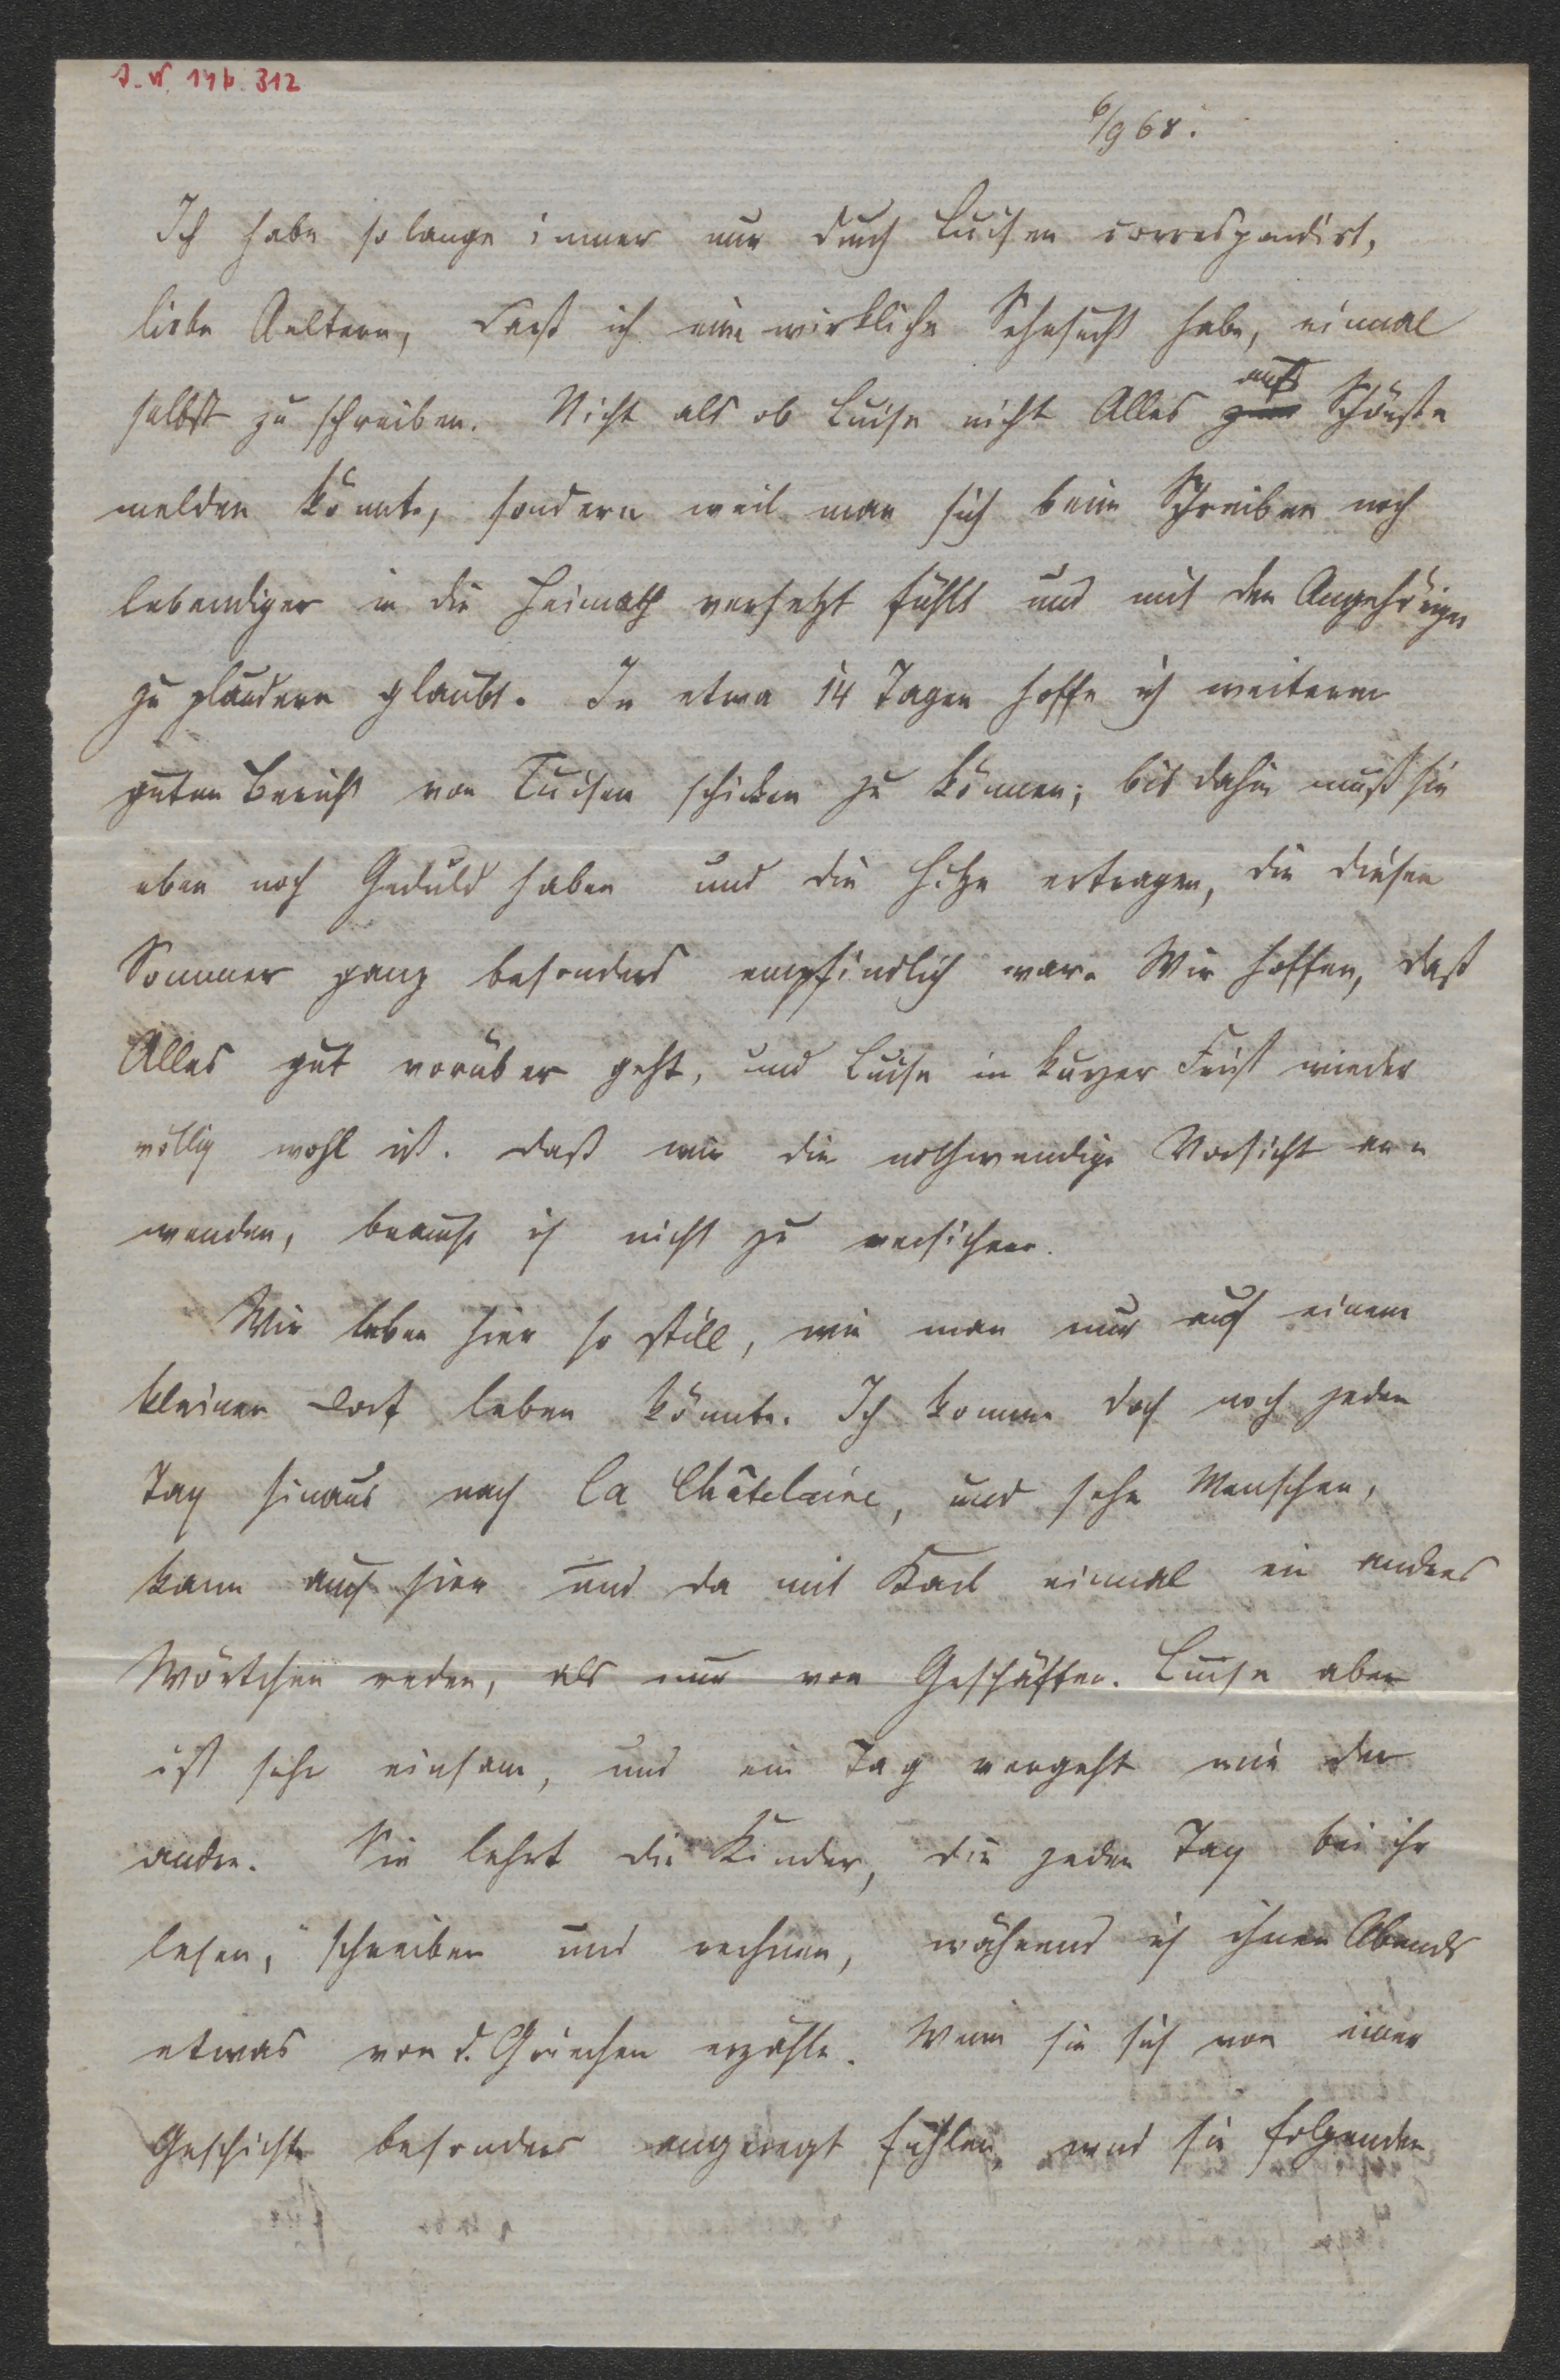 J. N. 146. 312
6/9 68.
Ich habe so lange immer nur durch Luisen correspondirt,
liebe Aeltern, daß ich eine wirkliche Sehnsucht habe, einmal
selbst zu schreiben. Nicht als ob Luise nicht Alles zum aufs Schönste
melden könnte, sondern weil man sich beim Schreiben noch
lebendiger in die Heimath versetzt fühlt und mit den Angehörigen
zu plaudern glaubt. In etwa 14 Tagen hoffe ich weiteren
guten Bericht von Luisen schicken zu können; bis dahin muß sie
eben noch Geduld haben und die Hitze ertragen, die diesen
Sommer ganz besonders empfindlich war. Wir hoffen, daß
Alles gut vorüber geht, und Luise in kurzer Frist wieder
völlig wohl ist. Daß wir die nothwendige Vorsicht an-
wenden, brauche ich nicht zu versichern.
Wir leben hier so still, wie man nur auf einem
kleinen Dorf leben könnte. Ich komme doch noch jeden
Tag hinaus nach la Châtelaine, und sehe Menschen,
kann auch hier und da mit Karl einmal ein anders
Wörtchen reden, als nur von Geschäften. Luise aber
ist sehr einsam, und ein Tag vergeht wie der
andre. Sie lehrt die Kinder, die jeden Tag bei ihr
lesen, schreiben und rechnen, während ich ihnen Abends
etwas von d. Griechen erzähle. Wenn sie sich von einer
Geschichte besonders angeregt fühlen, wird sie folgenden